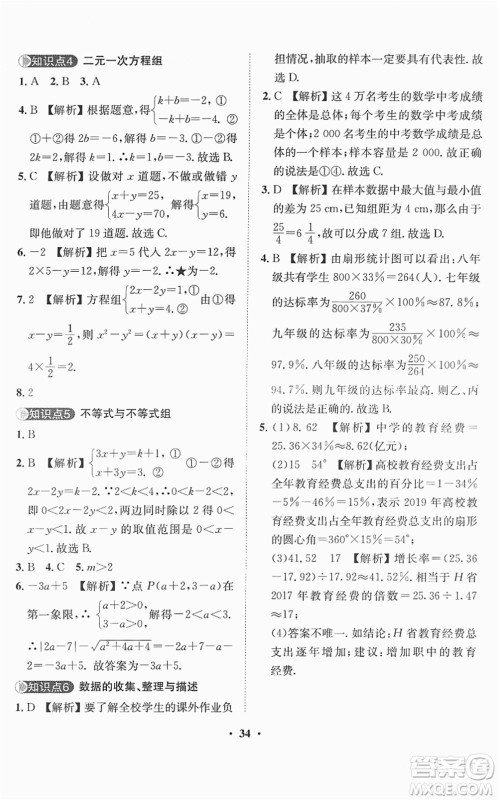 知识点4 二元一次方程组
1. A 2. B 3. A
4. B 【解析】根据题意,得{k+b=-2,① -k+b=-4,②
①+②得 2b=-6,解得 b=-3.①-②得
2k=2,解得 k=1.∴k=1,b=-3.故选 B.
5. C 【解析】设做对 x 道题,不做或做错 y
道题,由题意得{x+y=25, 4x-y=70,解得{x=19, y=6.
即他做对了 19 道题.故选 C.
6. -2 【解析】把 x=5 代入 2x-y=12,得
2×5-y=12.解得 y=-2.∴★为-2.
7. 2 【解析】方程组{2x-2y=1,① x+y=4,②由①得
x-y=1/2,则 x²-y²=(x+y)(x-y)=
4×1/2=2.
8. 2
知识点5 不等式与不等式组
1. B
2. B 【解析】{3x+y=k+1,① x+3y=3,②①-②得
2x-2y=k-2,∵2<k<4,∴0<k-2<2,
即 0<2x-2y<2,两边同时除以 2 得,
0<x-y<1.则 x-y 的取值范围是 0<
x-y<1.故选 B.
3. B 4. C 5. m>2
6. -3a+5 【解析】∵点 P(a+2,3-a)在
第一象限,∴{a+2>0, 3-a>0.∴-2<a<3.
∴|2a-7|-√(a²+4a+4)=7-2a-a-2
=-3a+5.故答案为-3a+5.
知识点6 数据的收集、整理与描述
1. D 【解析】要了解全校学生的课外作业负
担情况,抽取的样本一定要具有代表性,
故选 D.
2. C 【解析】这 4 万名考生的数学中考成绩
的全体是总体;每个考生的数学中考成绩
是个体;2 000 名考生的中考数学成绩是
总体的一个样本,样本容量是 2 000.故正确
的说法是①④.故选 C.
3. D 【解析】∵在样本数据中最大值与最小值
的差为 25 cm,已知组距为 4 cm,∴由于
25/4=6 1/4,故可以分成 7 组.故选 D.
4. B 【解析】由扇形统计图可以看出:八年
级共有学生 800×33%=264(人).七年级
的达标率为 260/(800×37%)×100%≈87.8%;
九年级的达标率为 235/(800×30%)×100%≈
97.9%.八年级的达标率为 250/264×100%≈
94.7%.则九年级的达标率最高.则乙、丙
的说法是正确的.故选 B.
5. (1)8.62 【解析】中学的教育经费=
25.36×34%≈8.62(亿元);
(2)15 54° 【解析】高校教育经费支出占
全年教育经费总支出的百分比=1-34%
-39%-12%=15%,表示 2019 年高校教
育经费支出占全年教育经费支出的扇形
的圆心角=360°×15%=54°;
(3)41.52 17 【解析】增长率=(25.36
-17.92)÷17.92≈41.52%;相当于 H 省
2017 年教育经费的倍数=25.36÷1.49
≈17;
(4)答案不唯一.如结论:H 省教育经费总
支出逐年增加,增加职中的教育
经费.
· 34 ·
作业帮